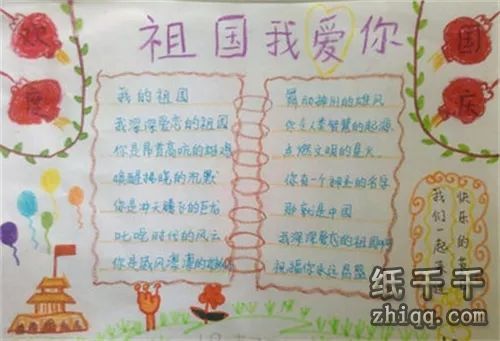 欢度
国庆
祖国我爱你
我的祖国
我深深爱恋的祖国
你是昂首高吭的雄鸡
唤醒拂晓的沉默
你是冲天腾飞的巨龙
叱咤时代的风云
你是威风凛凛的
舞动神州的雄风
你是人类智慧的起源
点燃文明的星火
你有一个神圣的名字
那就是中国
我深深爱恋的祖国啊
祝福你永远昌盛
快乐的
我们一起
纸千千
zhiqq.com